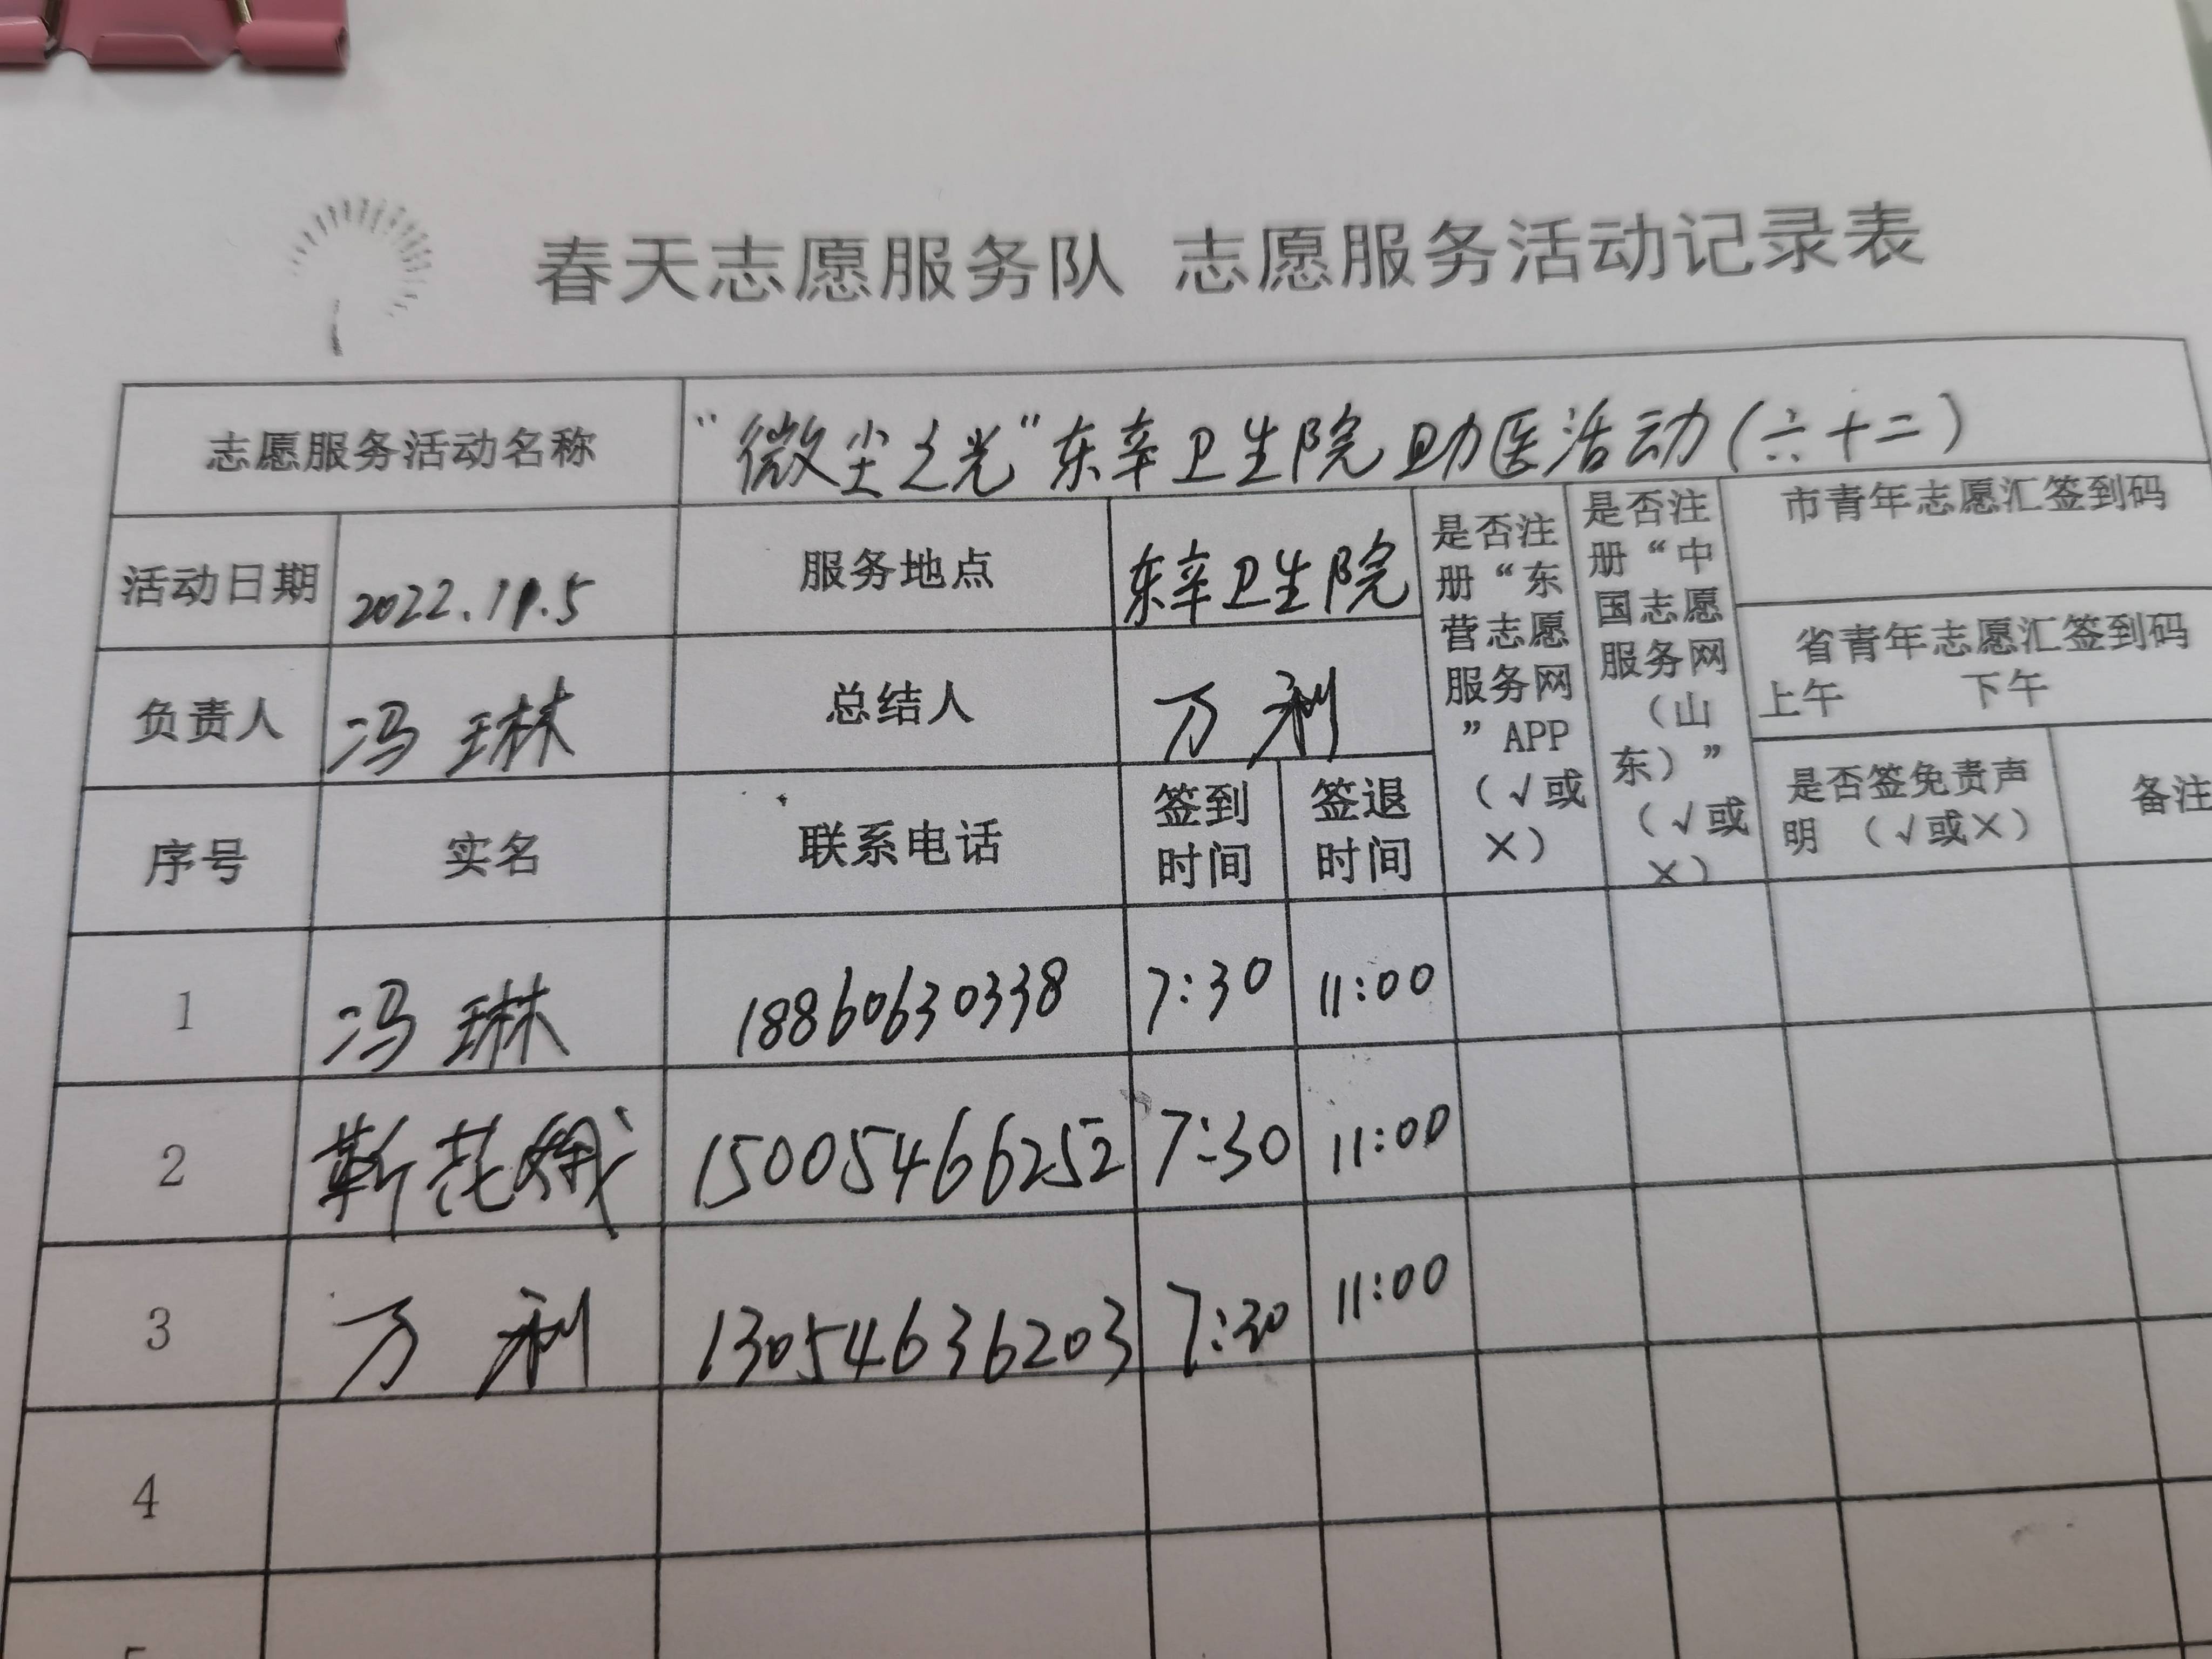 春天志愿服务队 志愿服务活动记录表
志愿服务活动名称 “微尘之光”东辛卫生院助医活动(六十二)
活动日期 2022.11.5 服务地点 东辛卫生院
是否注册“东营志愿服务网”APP（√或×）
是否注册“中国志愿服务网（山东）”（√或×）
市青年志愿汇签到码
省青年志愿汇签到码
上午 下午
负责人 冯琳 总结人 万利
序号 实名 联系电话 签到时间 签退时间 是否签免责声明（√或×） 备注
1 冯琳 18860630338 7:30 11:00
2 靳花娥 15005466252 7:30 11:00
3 万利 13054636203 7:30 11:00
4